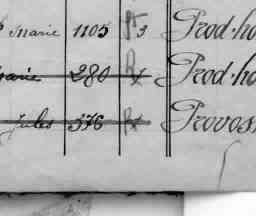 Marie 1105 Prod·ho
Marie 280 Prod·ho
Jules 576 Provos